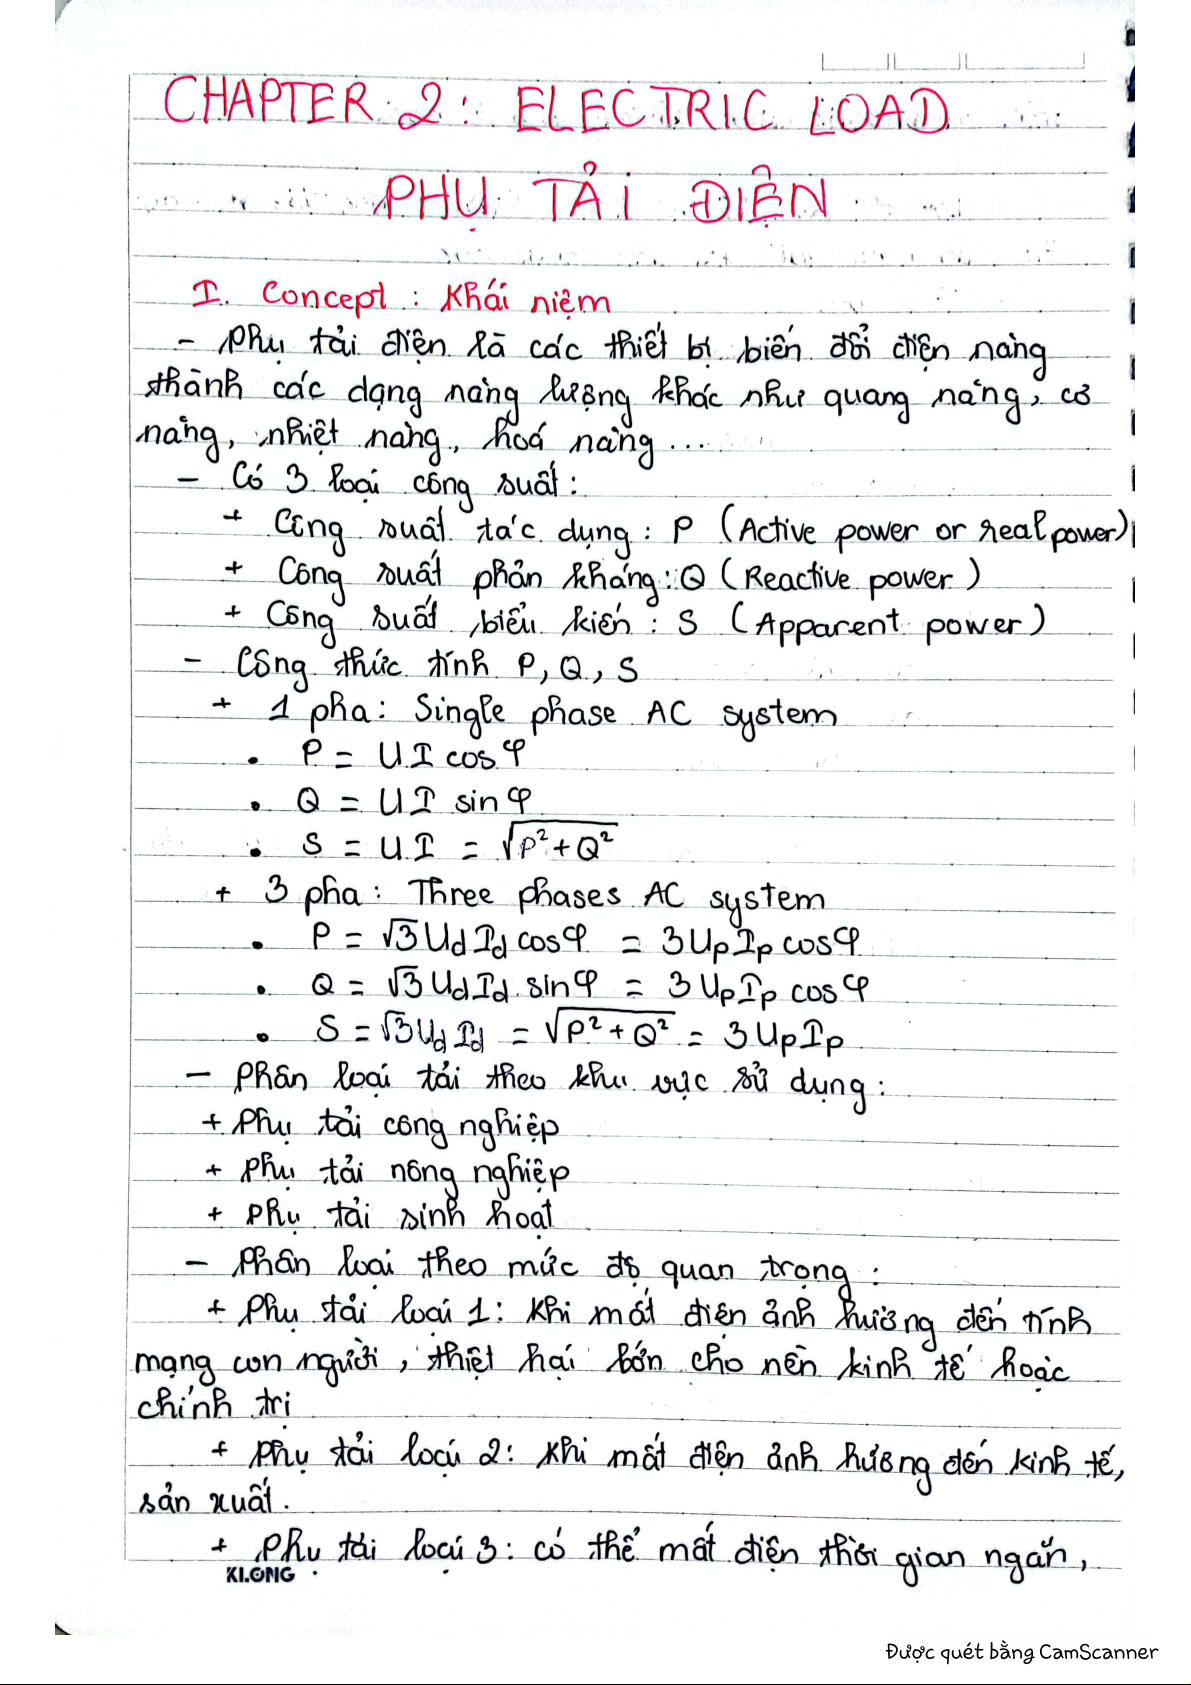 CHAPTER 2: ELECTRIC LOAD
PHỤ TẢI ĐIỆN
I. Concept: Khái niệm
- Phụ tải điện là các thiết bị biến đổi điện năng
thành các dạng năng lượng khác như quang năng, cơ
năng, nhiệt năng, hoá năng...
- Có 3 loại công suất:
+ Công suất tác dụng: P (Active power or real power)
+ Công suất phản kháng: Q (Reactive power)
+ Công suất biểu kiến: S (Apparent power)
- Công thức tính P, Q, S
+ 1 pha: Single phase AC system
• P = UI cosφ
• Q = UI sinφ
• S = U.I = √P²+Q²
+ 3 pha: Three phases AC system
• P = √3UdId cosφ = 3UpIp cosφ
• Q = √3UdId sinφ = 3UpIp cosφ
• S = √3UdId = √P²+Q² = 3UpIp
- Phân loại tải theo khu vực sử dụng:
+ Phụ tải công nghiệp
+ Phụ tải nông nghiệp
+ Phụ tải sinh hoạt
- Phân loại theo mức độ quan trọng:
+ Phụ tải loại 1: Khi mất điện ảnh hưởng đến tính
mạng con người, thiệt hại lớn cho nền kinh tế hoặc
chính trị
+ Phụ tải loại 2: Khi mất điện ảnh hưởng đến kinh tế,
sản xuất.
+ Phụ tải loại 3: có thể mất điện thời gian ngắn,
KLONG
Được quét bằng CamScanner